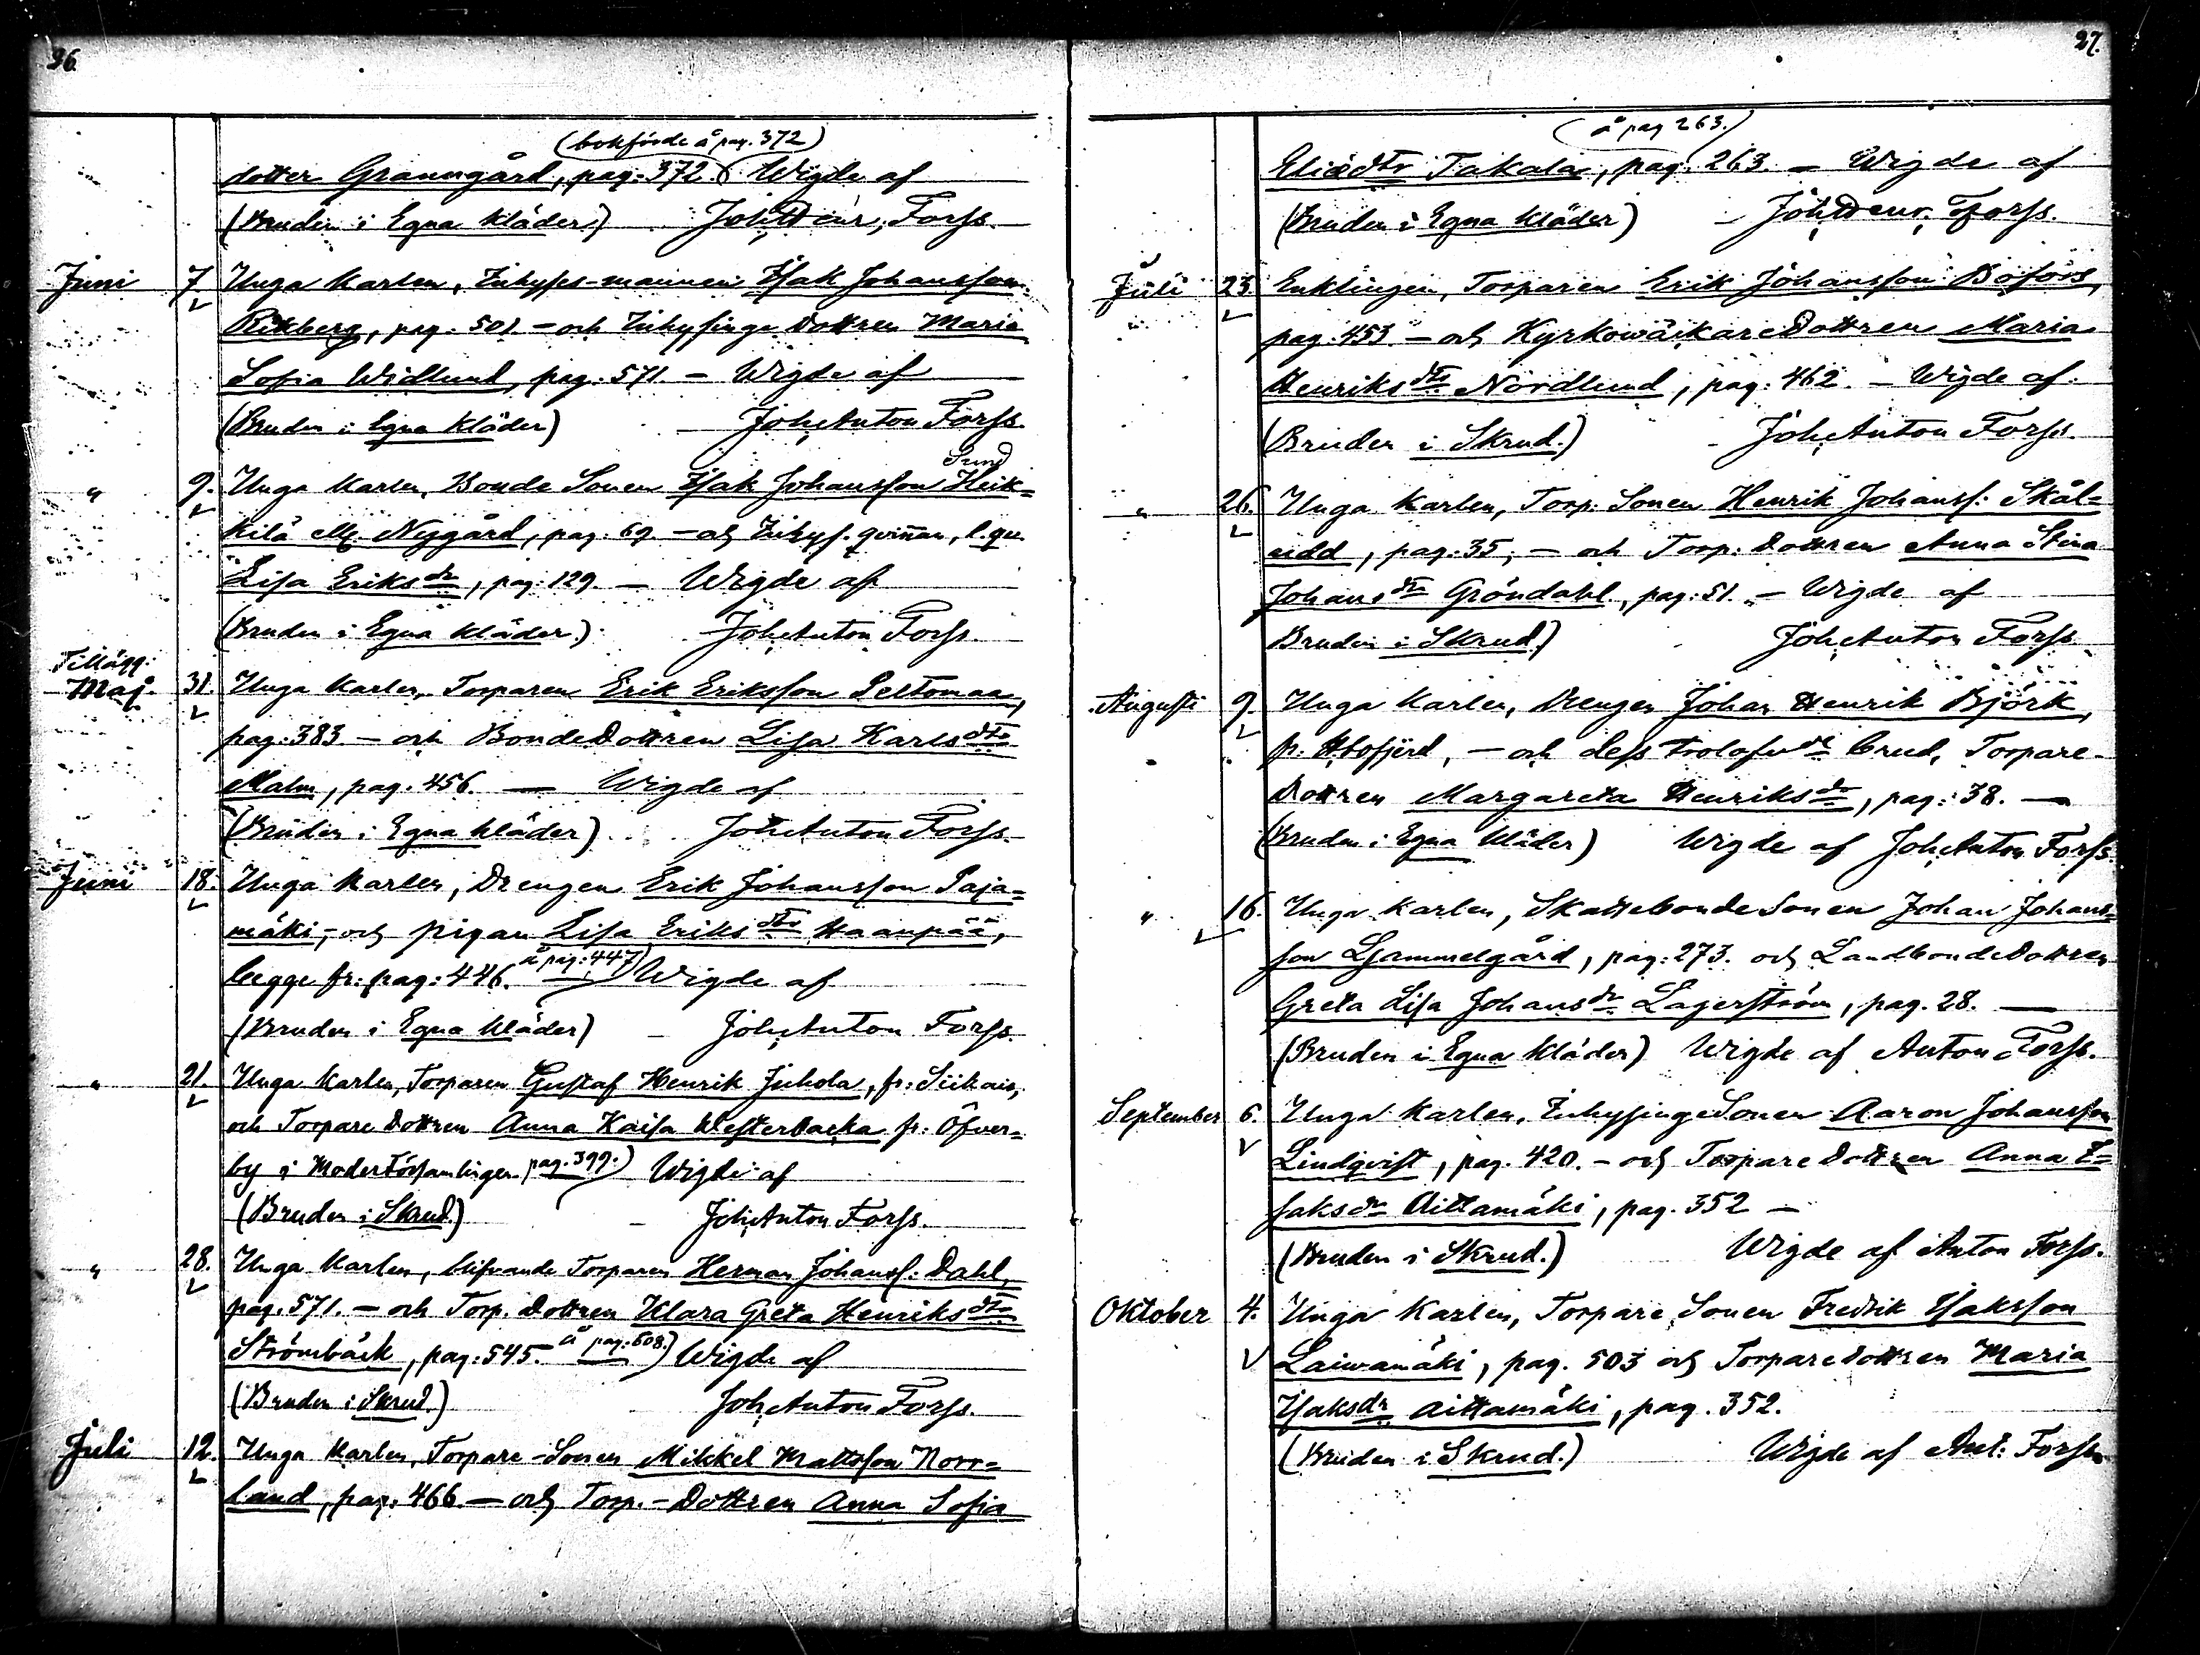 26.
(bokförde å pag. 372)
dotter Granngård, pag: 372. Wigde af
(Bruden i Egna Kläder) Joh. Forss.
Juni 7. Unga Karlen, Inhyses-mannen Isak Johansson
Rikberg, pag: 501 – och Inhysinge Dottren Maria
Sofia Widlund, pag: 571. – Wigde af
(Bruden i Egna Kläder) – Joh. Anton Forss.
Sund
" 9. Unga Karlen, Bonde Sonen Isak Johansson Heik=
kilä ell. Nygård, pag: 69 – och Inhys. qvinnan, l. qu.
Lisa Eriksdr, pag: 129 – Wigde af
(Bruden i Egna Kläder) Joh. Anton Forss.
Tillägg:
Maj. 31. Unga Karlen, Torparen Erik Eriksson Peltomaa,
pag: 383. – och BondeDottren Lisa Karlsdtr
Malm, pag. 456. — Wigde af
(Bruden i Egna Kläder) Joh. Anton Forss.
Juni 18. Unga Karlen, Drengen Erik Johansson Paja=
mäki, – och pigan Lisa Eriksdtr Haanpää,
å pag: 447)
begge fr: pag: 446. Wigde af
(Bruden i Egna Kläder) – Joh. Anton Forss.
" 21. Unga Karlen, Torparen Gustaf Henrik Juhola, fr: Siikais,
och Torpare Dottren Anna Kaisa Westerbacka fr: Öfver=
by i Moderförsamlingen pag. 399.) Wigde af
(Bruden i Skrud.) – Joh. Anton Forss.
" 28. Unga Karlen, blifvande Torparen Herman Johanss: Dahl,
pag. 571. – och Torp. Dottren Klara Greta Henriksdtr
Strömbäck, pag: 545. å pag: 608.) Wigde af
(Bruden i Skrud.) Joh. Anton Forss.
Juli 12. Unga Karlen, Torpare-Sonen Mikkel Mattsson Norr=
land, pag. 466. – och Torp.-Dottren Anna Sofia
27.
(å pag 263.)
Eliædtr Takala, pag. 263. – Wigde af
(Bruden i Egna Kläder) – Joh. Forss.
Juli 23. Enklingen, Torparen Erik Johansson Bofors,
pag: 453. – och KyrkowäktareDottren Maria
Henriksdtr Nordlund, pag: 462. – Wigde af
(Bruden i Skrud.) – Joh. Anton Forss.
" 26. Unga Karlen, Torp: Sonen Henrik Johanss: Skål=
udd, pag: 35, – och Torp: Dottren Anna Stina
Johansdtr Gröndahl, pag: 51. – Wigde af
Bruden i Skrud.) Joh. Anton Forss.
Augusti 9. Unga Karlen, Drengen Johan Henrik Björk,
fr: Hvofjerd, – och dess trolofvade brud, Torpare-
Dottren Margareta Henriksdr, pag: 38. —
(Bruden i Egna Kläder) Wigde af Joh. Anton Forss.
" 16. Unga Karlen, SkattebondeSonen Johan Johans=
son Gammelgård, pag: 273. och LandbondeDottren
Greta Lisa Johansdr Lagerström, pag. 28. —
(Bruden i Egna Kläder) Wigde af Anton Forss.
September 6. Unga Karlen, InhysingeSonen Aaron Johansson
Lindqvist, pag. 420. – och TorpareDottren Anna I=
saksdr Aittamäki, pag. 352 –
(Bruden i Skrud.) Wigde af Anton Forss.
Oktober 4. Unga Karlen, Torpare Sonen Fredrik Isaksson
Laiwamäki, pag. 503 och TorpareDottren Maria
Isaksdr Aittamäki, pag. 352.
(Bruden i Skrud.) Wigde af Ant: Forss.